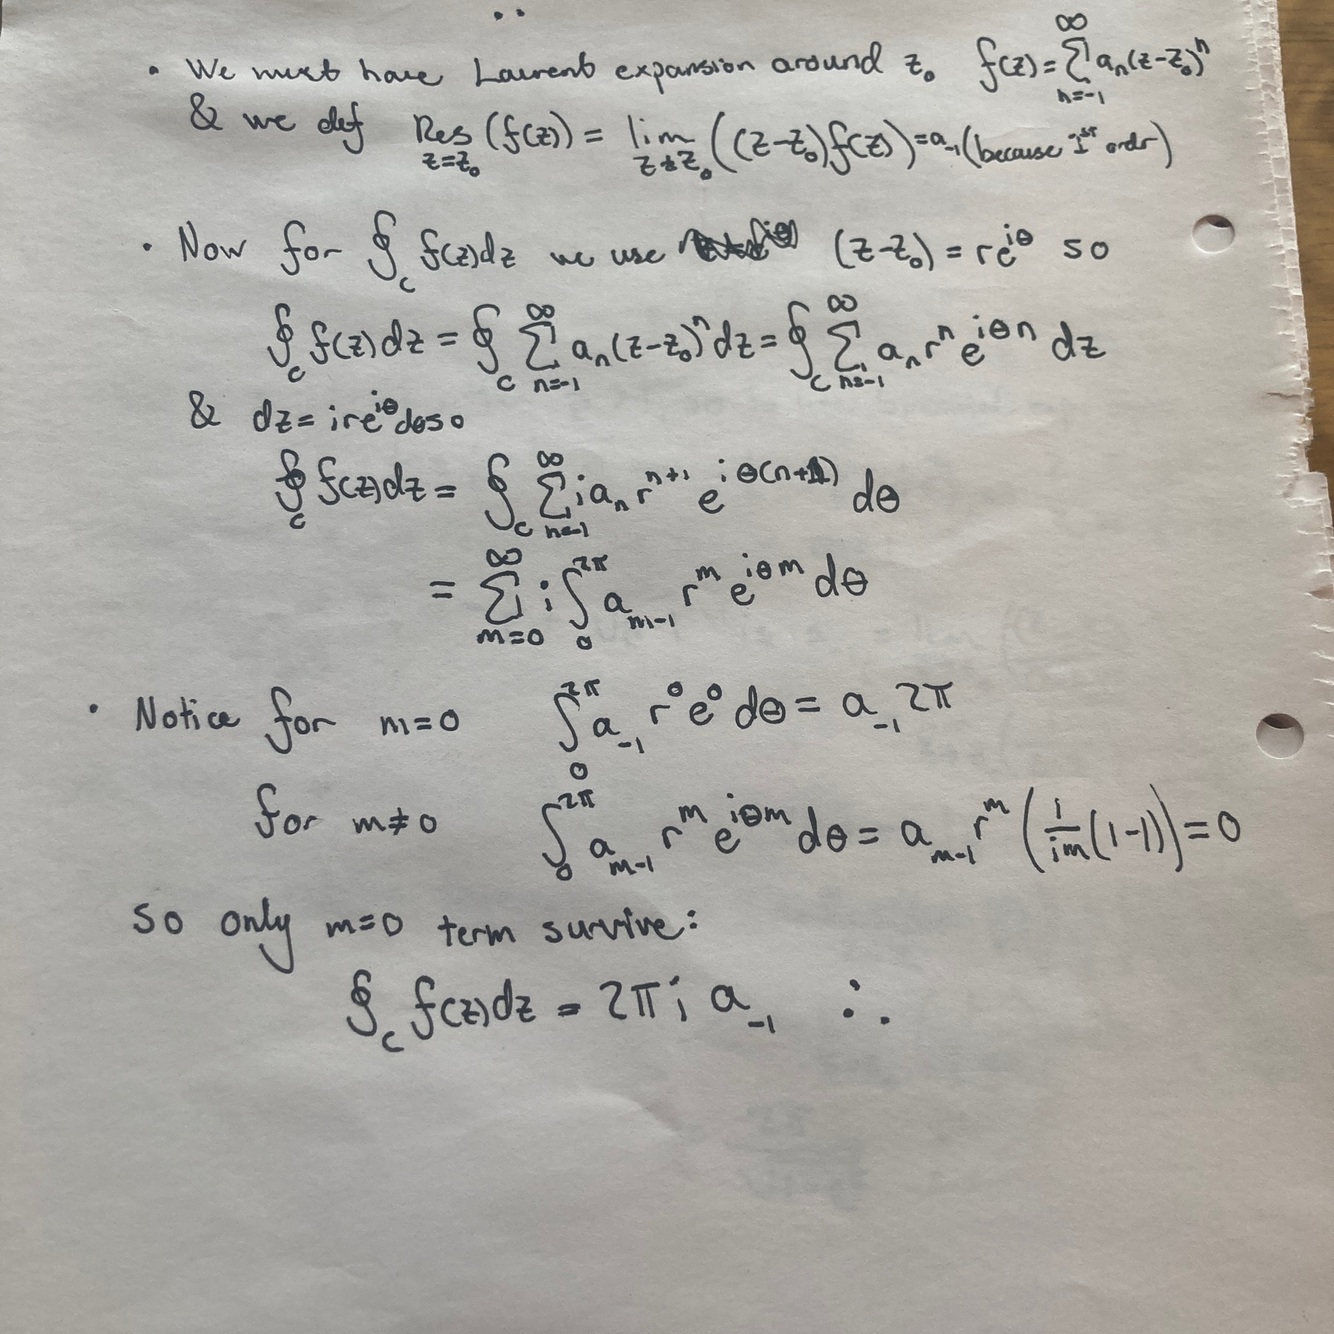 • We must have Laurent expansion around z₀ f(z)=∑_{n=-1}^{∞} aₙ(z-z₀)ⁿ
& we def Res_{z=z₀} (f(z)) = lim_{z→z₀} ((z-z₀)f(z)) = a₋₁ (because 1ˢᵗ order)
• Now for ∮_c f(z)dz we use (z-z₀) = re^{iθ} so
∮_c f(z)dz = ∮_c ∑_{n=-1}^{∞} aₙ(z-z₀)ⁿdz = ∮_c ∑_{n=-1}^{∞} aₙrⁿe^{iθn} dz
& dz = ire^{iθ}dθ so
∮_c f(z)dz = ∮_c ∑_{n=-1}^{∞} iaₙr^{n+1} e^{iθ(n+1)} dθ
= ∑_{m=0}^{∞} i∫_0^{2π} a_{m-1} r^m e^{iθm} dθ
• Notice for m=0 ∫_0^{2π} a₋₁ r⁰e⁰ dθ = a₋₁2π
for m≠0 ∫_0^{2π} a_{m-1} r^m e^{iθm} dθ = a_{m-1} r^m (1/im (1-1)) = 0
so only m=0 term survive:
∮_c f(z)dz = 2πi a₋₁ ∴